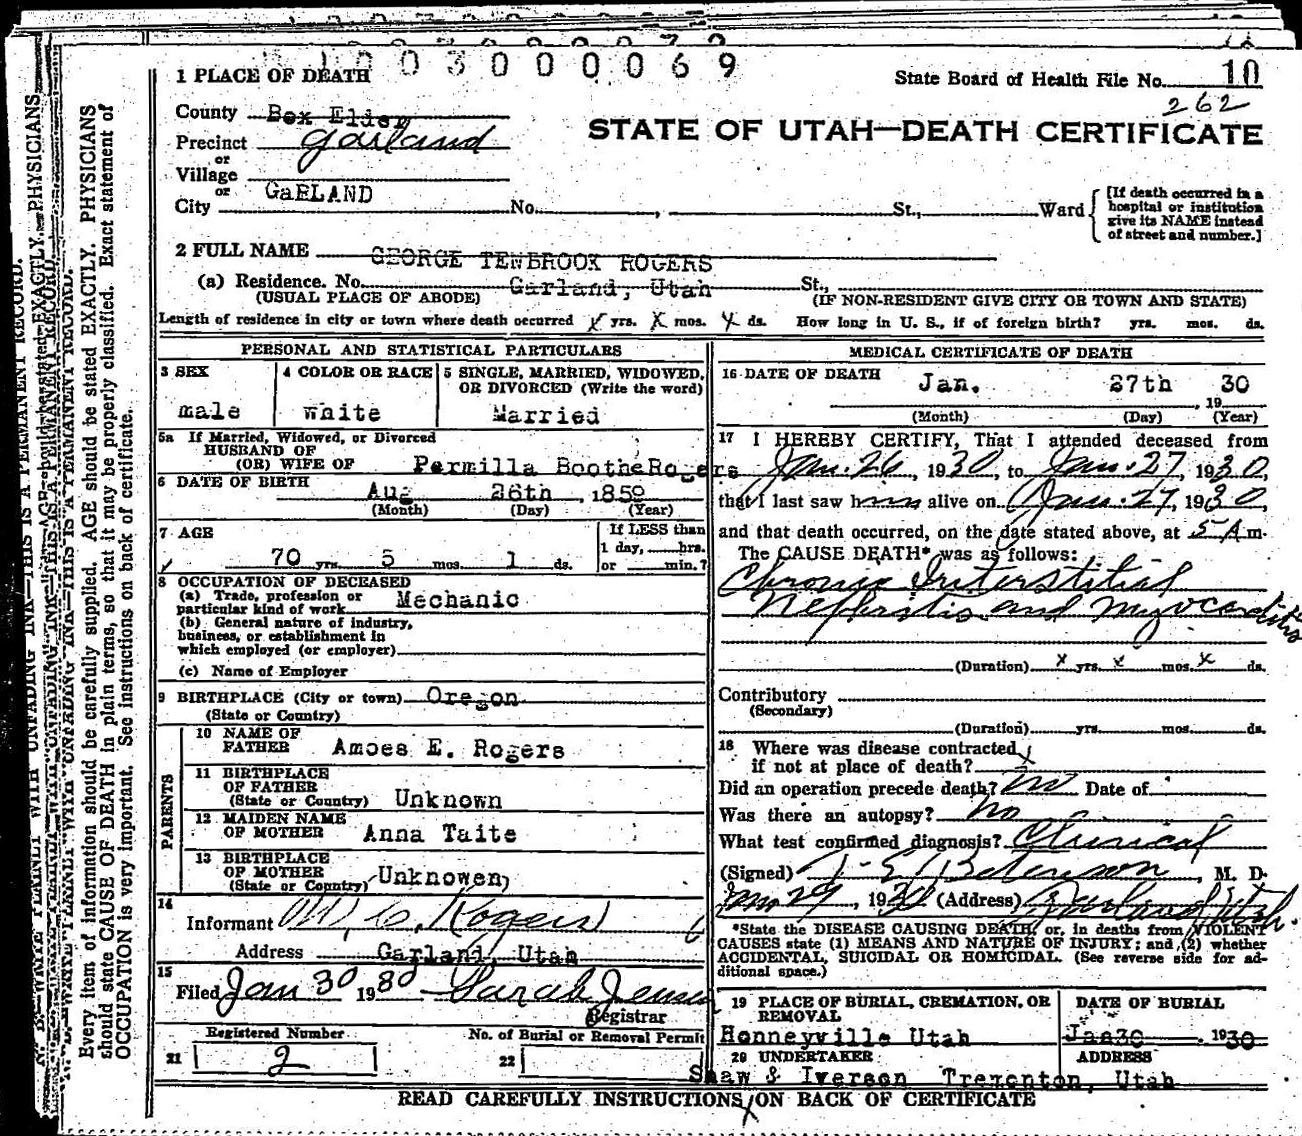 0 0 3 0 0 0 0 6 9
1 PLACE OF DEATH
State Board of Health File No. 10
262
County Box Elder
STATE OF UTAH—DEATH CERTIFICATE
Precinct Garland
or
Village
or GaRLAND
City No. , St., Ward
[If death occurred in a
hospital or institution
give its NAME instead
of street and number.]
2 FULL NAME GEORGE TENBROOK ROGERS
(a) Residence. No. Garland, Utah St.,
(USUAL PLACE OF ABODE) (IF NON-RESIDENT GIVE CITY OR TOWN AND STATE)
Length of residence in city or town where death occurred x yrs. x mos. x ds. How long in U. S., if of foreign birth? yrs. mos. ds.
PERSONAL AND STATISTICAL PARTICULARS
3 SEX
male
4 COLOR OR RACE
white
5 SINGLE, MARRIED, WIDOWED,
OR DIVORCED (Write the word)
Married
5a If Married, Widowed, or Divorced
HUSBAND OF
(OR) WIFE OF Permilla BootheRogers
6 DATE OF BIRTH
Aug 26th , 1859
(Month) (Day) (Year)
7 AGE
70 yrs. 5 mos. 1 ds.
If LESS than
1 day, hrs.
or min.?
8 OCCUPATION OF DECEASED
(a) Trade, profession or
particular kind of work Mechanic
(b) General nature of industry,
business, or establishment in
which employed (or employer)
(c) Name of Employer
9 BIRTHPLACE (City or town) Oregon
(State or Country)
PARENTS
10 NAME OF
FATHER Amoes E. Rogers
11 BIRTHPLACE
OF FATHER
(State or Country) Unknown
12 MAIDEN NAME
OF MOTHER Anna Taite
13 BIRTHPLACE
OF MOTHER
(State or Country) Unknowen
14
Informant W. C. Rogers
Address Garland, Utah
15
Filed Jan 30 1930 Sarah Jensen
Registrar
Registered Number
21 2
No. of Burial or Removal Permit
22
MEDICAL CERTIFICATE OF DEATH
16 DATE OF DEATH Jan. 27th 30
, 19
(Month) (Day) (Year)
17 I HEREBY CERTIFY, That I attended deceased from
Jan. 26, 1930, to Jan. 27, 1930,
that I last saw him alive on Jan. 27, 1930,
and that death occurred, on the date stated above, at 5 A m.
The CAUSE DEATH* was as follows:
Chronic Interstitial
Nephritis and Myocarditis
(Duration) x yrs. x mos. x ds.
Contributory
(Secondary)
(Duration) yrs. mos. ds.
18 Where was disease contracted
if not at place of death? x
Did an operation precede death? no Date of
Was there an autopsy? no
What test confirmed diagnosis? Clinical
(Signed) , M. D.
Jan 29, 1930 (Address) Garland Utah.
*State the DISEASE CAUSING DEATH, or, in deaths from VIOLENT
CAUSES state (1) MEANS AND NATURE OF INJURY; and (2) whether
ACCIDENTAL, SUICIDAL OR HOMICIDAL. (See reverse side for ad-
ditional space.)
19 PLACE OF BURIAL, CREMATION, OR
REMOVAL
Honneyville Utah
DATE OF BURIAL
Jan30 , 1930
20 UNDERTAKER ADDRESS
Shaw & Iverson Tremonton, Utah
READ CAREFULLY INSTRUCTIONS ON BACK OF CERTIFICATE
Every item of information should be carefully supplied. AGE should be stated EXACTLY. PHYSICIANS
should state CAUSE OF DEATH in plain terms, so that it may be properly classified. Exact statement of
OCCUPATION is very important. See instructions on back of certificate.